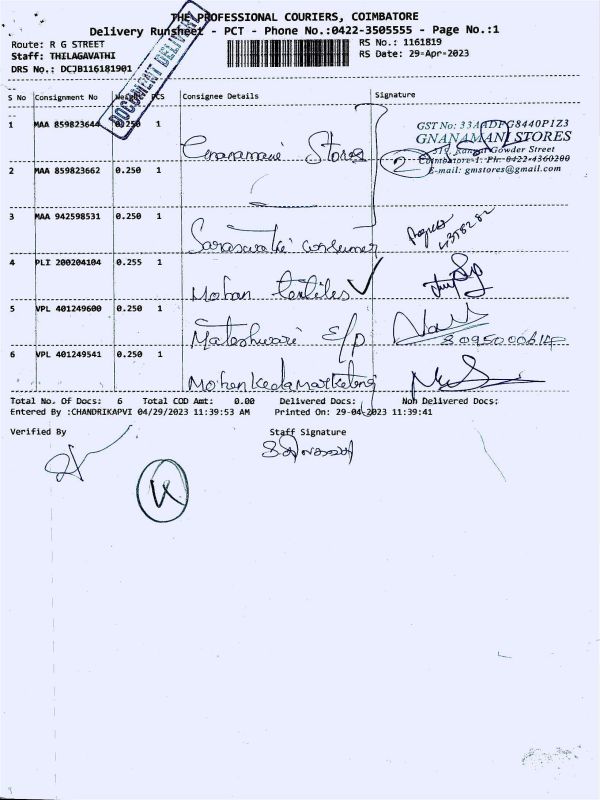 THE PROFESSIONAL COURIERS, COIMBATORE
Delivery Runsheet - PCT - Phone No.:0422-3505555 - Page No.:1
Route: R G STREET
RS No.: 1161819
Staff: THILAGAVATHI
RS Date: 29-Apr-2023
DRS No.: DCJB116181901
DOCUMENT DELIVERY
S No Consignment No Weight PCS Consignee Details Signature
1 MAA 859823644 0.250 1 Gnanamani Stores
GST No: 33AADFG8440P1Z3
GNANAMANI STORES
519, Rangai Gowder Street
Coimbatore-1. Ph: 0422-4360200
E-mail: gmstores@gmail.com
2
2 MAA 859823662 0.250 1
3 MAA 942598531 0.250 1
4 PLI 200204104 0.255 1 Mohan textiles
5 VPL 401249600 0.250 1 Mateshwari E/p
6 VPL 401249541 0.250 1
Total No. OF Docs: 6 Total COD Amt: 0.00 Delivered Docs: Non Delivered Docs:
Entered By :CHANDRIKAPVI 04/29/2023 11:39:53 AM Printed On: 29-04-2023 11:39:41
Verified By Staff Signature